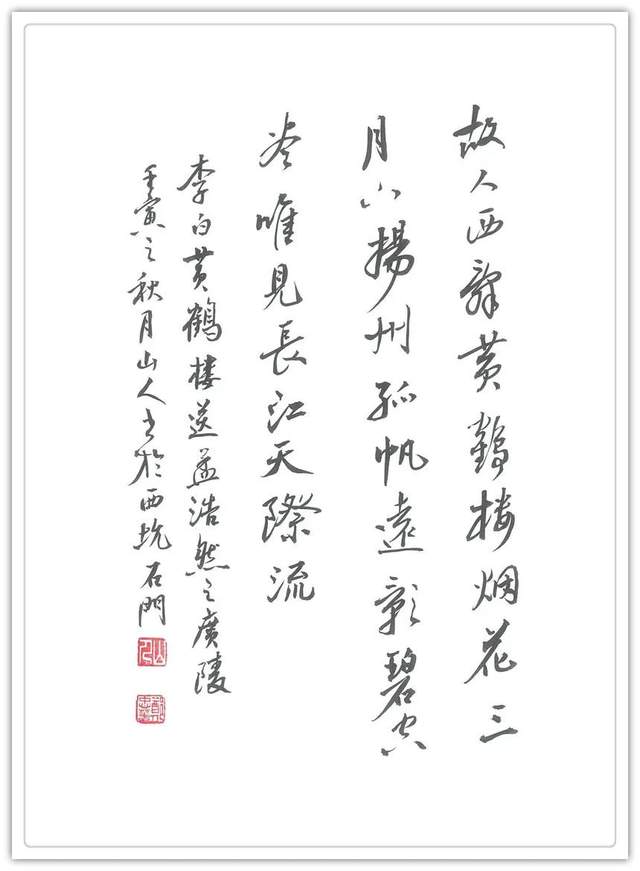 故人西辭黄鶴楼烟花三
月下揚州孤帆遠影碧空
尽唯見長江天際流
李白黄鶴楼送孟浩然之廣陵
壬寅之秋月山人书於西坑石門
山人